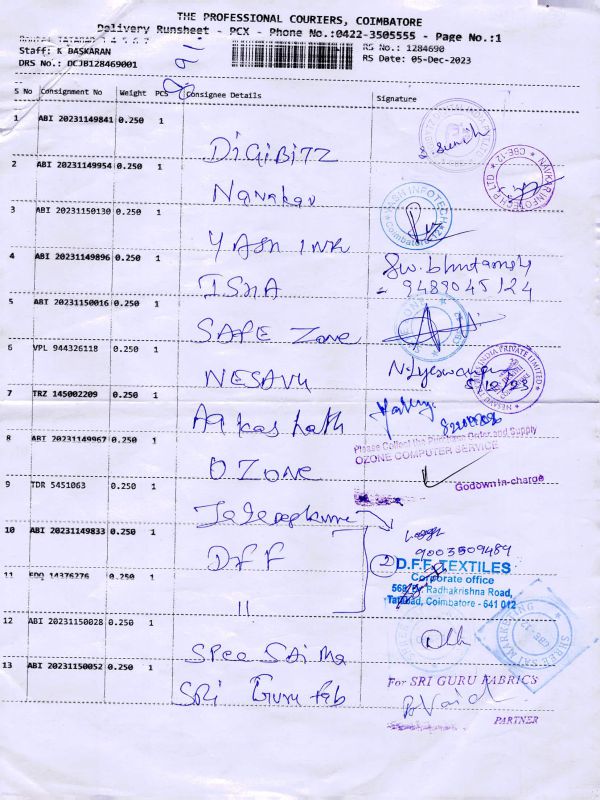 THE PROFESSIONAL COURIERS, COIMBATORE
Delivery Runsheet - PCX - Phone No.:0422-3505555 - Page No.:1
Staff: K BASKARAN
RS No.: 1284690
DRS No.: DCJB128469001
RS Date: 05-Dec-2023
S No Consignment No Weight PCS Consignee Details Signature
1 ABI 20231149841 0.250 1 DIGIBITZ
2 ABI 20231149954 0.250 1
CBE-12 NAVKAR INFOTECH P LTD
3 ABI 20231150130 0.250 1 YASH INK
YASH INFOTECH Coimbatore-12
4 ABI 20231149896 0.250 1 ISHA
9489045124
5 ABI 20231150016 0.250 1 SAFE Zone
6 VPL 944326118 0.250 1 NESAVU
INDIA PRIVATE LIMITED
5/12/23
7 TRZ 145002209 0.250 1
8 ABI 20231149967 0.250 1 OZONE
Please Collect the Purchase Order and Supply
OZONE COMPUTER SERVICE
Godown In-charge
9 TDR 5451063 0.250 1
10 ABI 20231149833 0.250 1 DFF
9003509489
2
D.F.F. TEXTILES
Corporate office
Radhakrishna Road,
Tatabad, Coimbatore - 641 012
11 EDO 14376276 0.250 1 11
12 ABI 20231150028 0.250 1 SREE SAI MA
SHREE SAI MARKETING
13 ABI 20231150052 0.250 1 SRI Guru Fab
For SRI GURU FABRICS
PARTNER